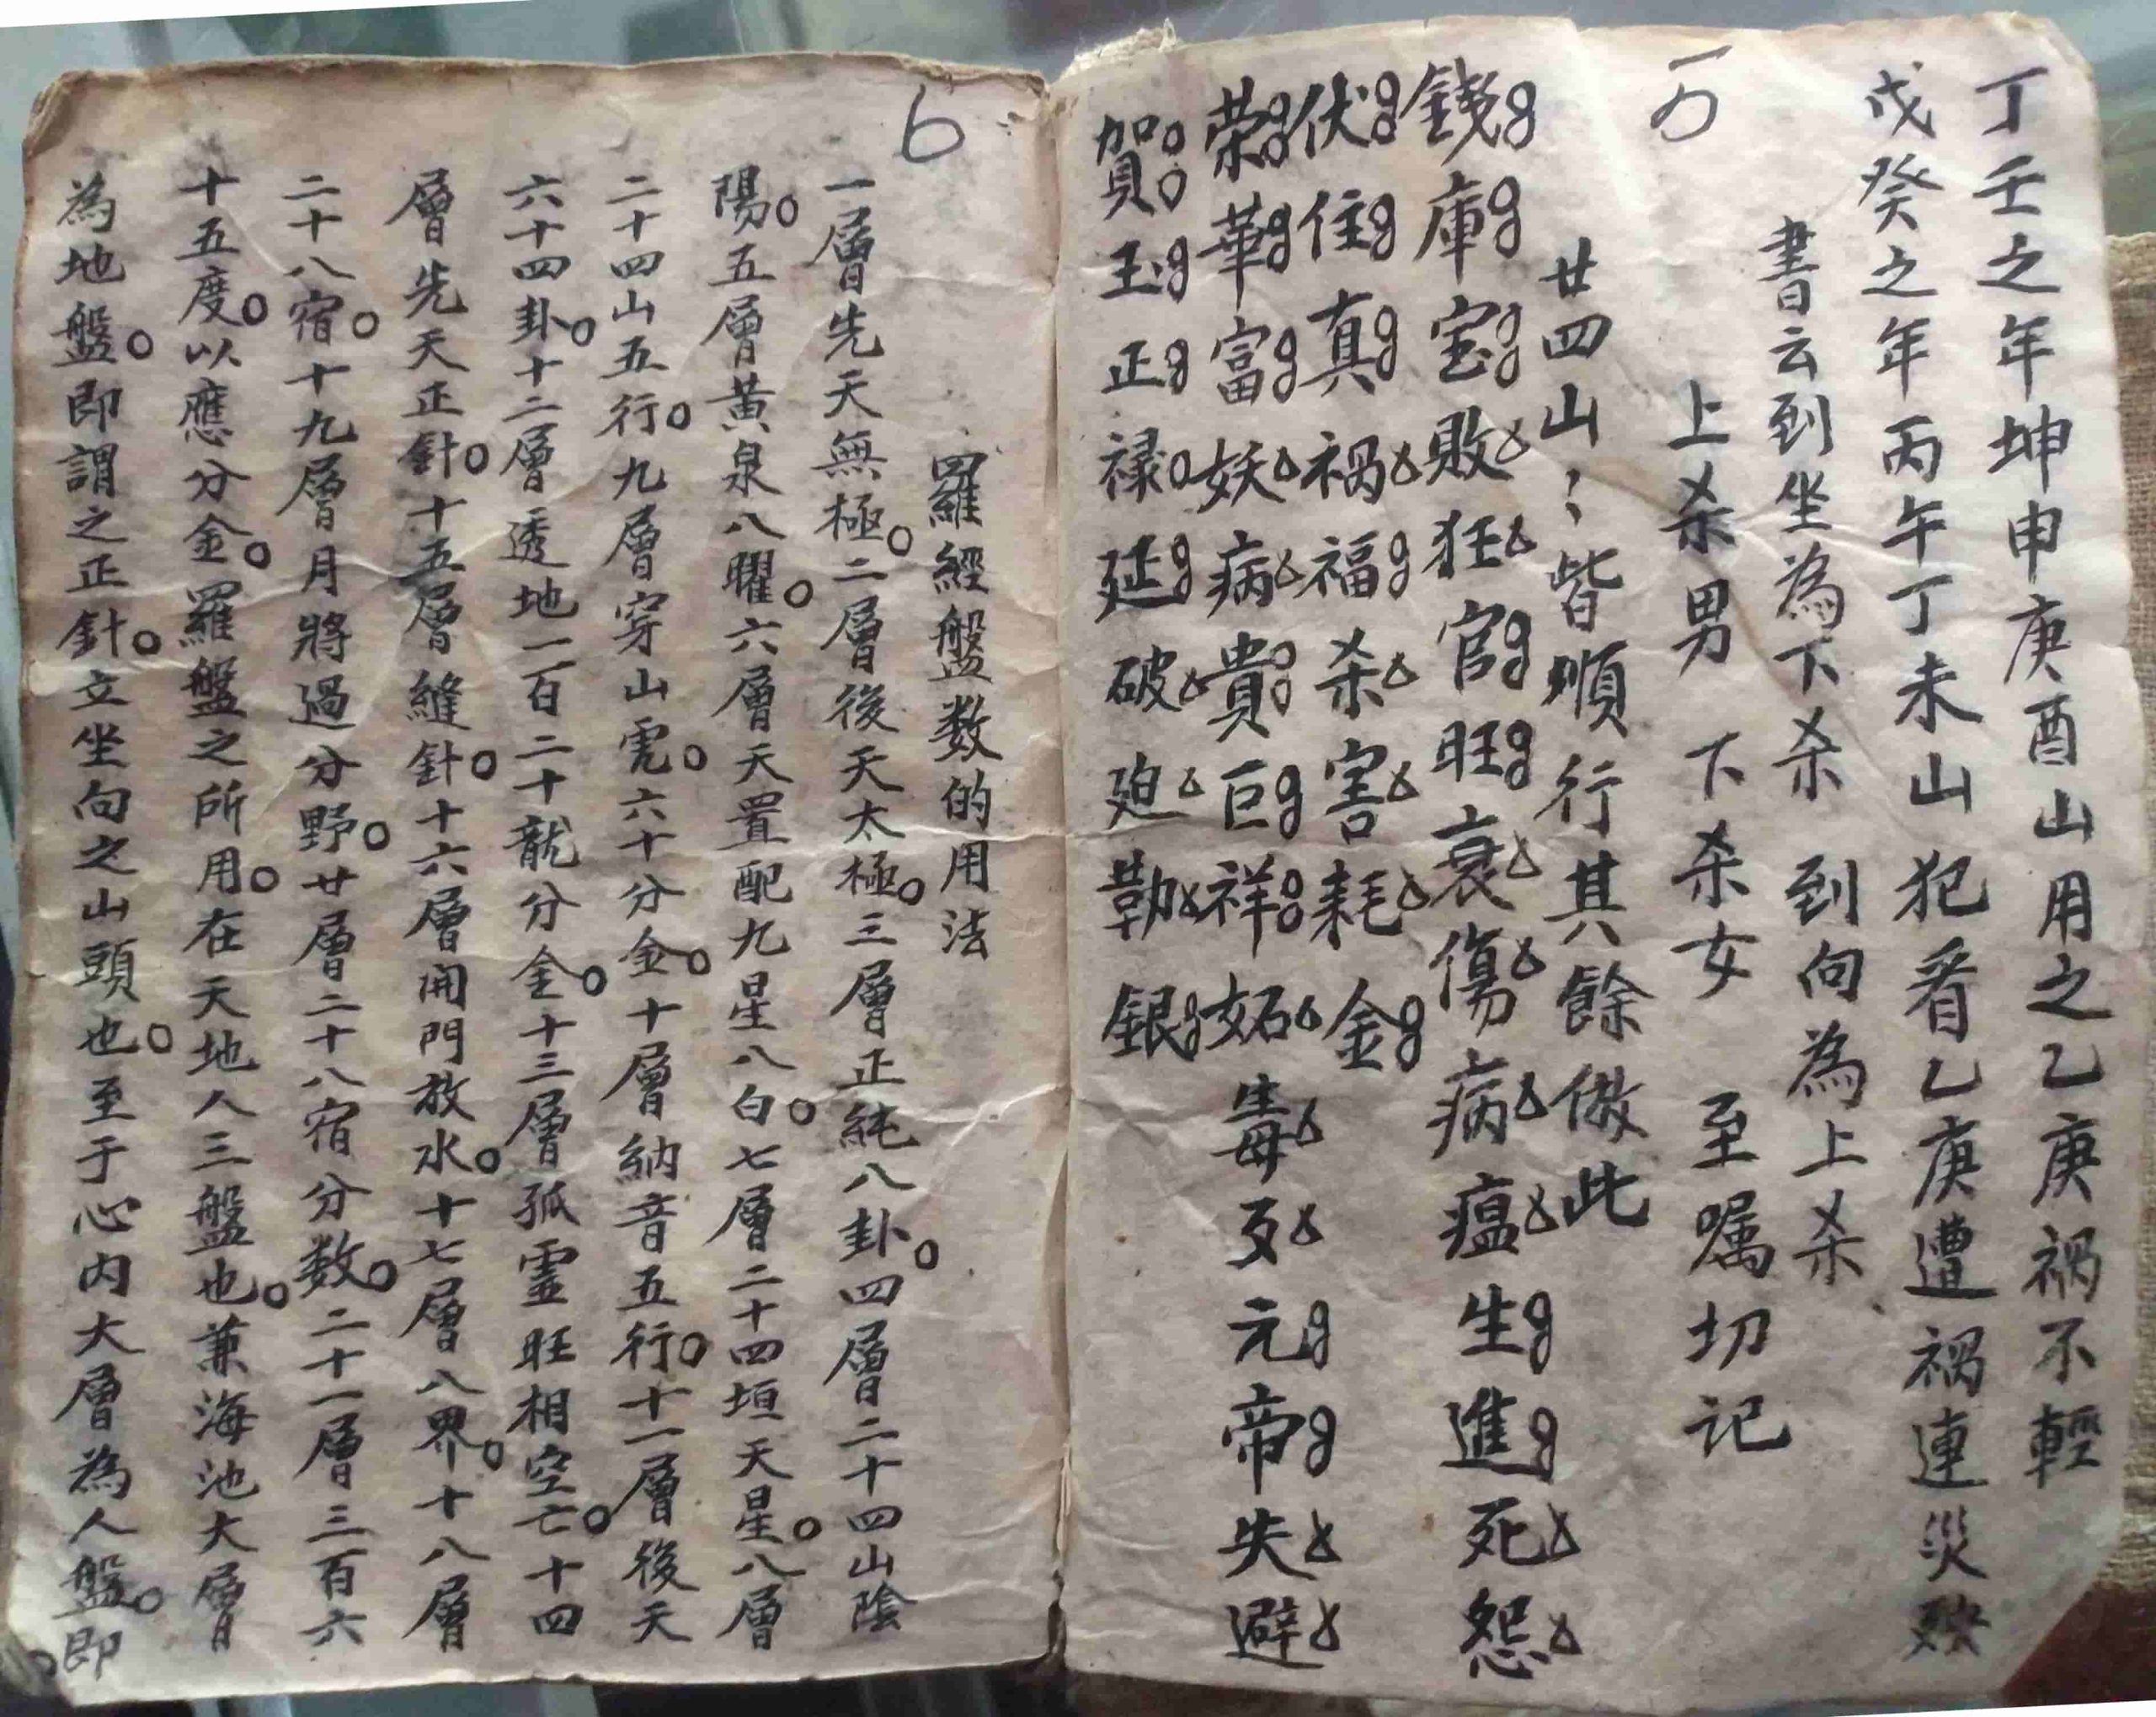 丁壬之年坤申庚酉山用之乙庚祸不輕
戊癸之年丙午丁未山犯看乙庚遭祸連災
書云到坐為下杀 到向為上杀
上杀男 下杀女 至嘱切记
廿四山〻皆順行其餘倣此
錢庫宝敗狂官旺衰傷病瘟生進死怨
伏住真祸福杀害耗金
荣華富妖病貴巨祥妬毒歹元帝失避
賀玉正禄延破廹勒銀
6
羅經盤数的用法
一層先天無極。二層後天太極。三層正純八卦。四層二十四山陰
陽。五層黄泉八曜。六層天置配九星八白。七層二十四垣天星。八層
二十四山五行。九層穿山虎。六十分金。十層納音五行。十一層後天
六十四卦。十二層透地一百二十龍分金。十三層孤虛旺相空亡。十四
層先天正針。十五層縫針。十六層開門放水。十七層八界。十八層
二十八宿。十九層月將過分野。廿層二十八宿分数。二十一層三百六
十五度。以應分金。羅盤之所用。在天地人三盤也。兼海池大層
為地盤。即謂之正針。立坐向之山頭也。至于心内大層為人盤。即